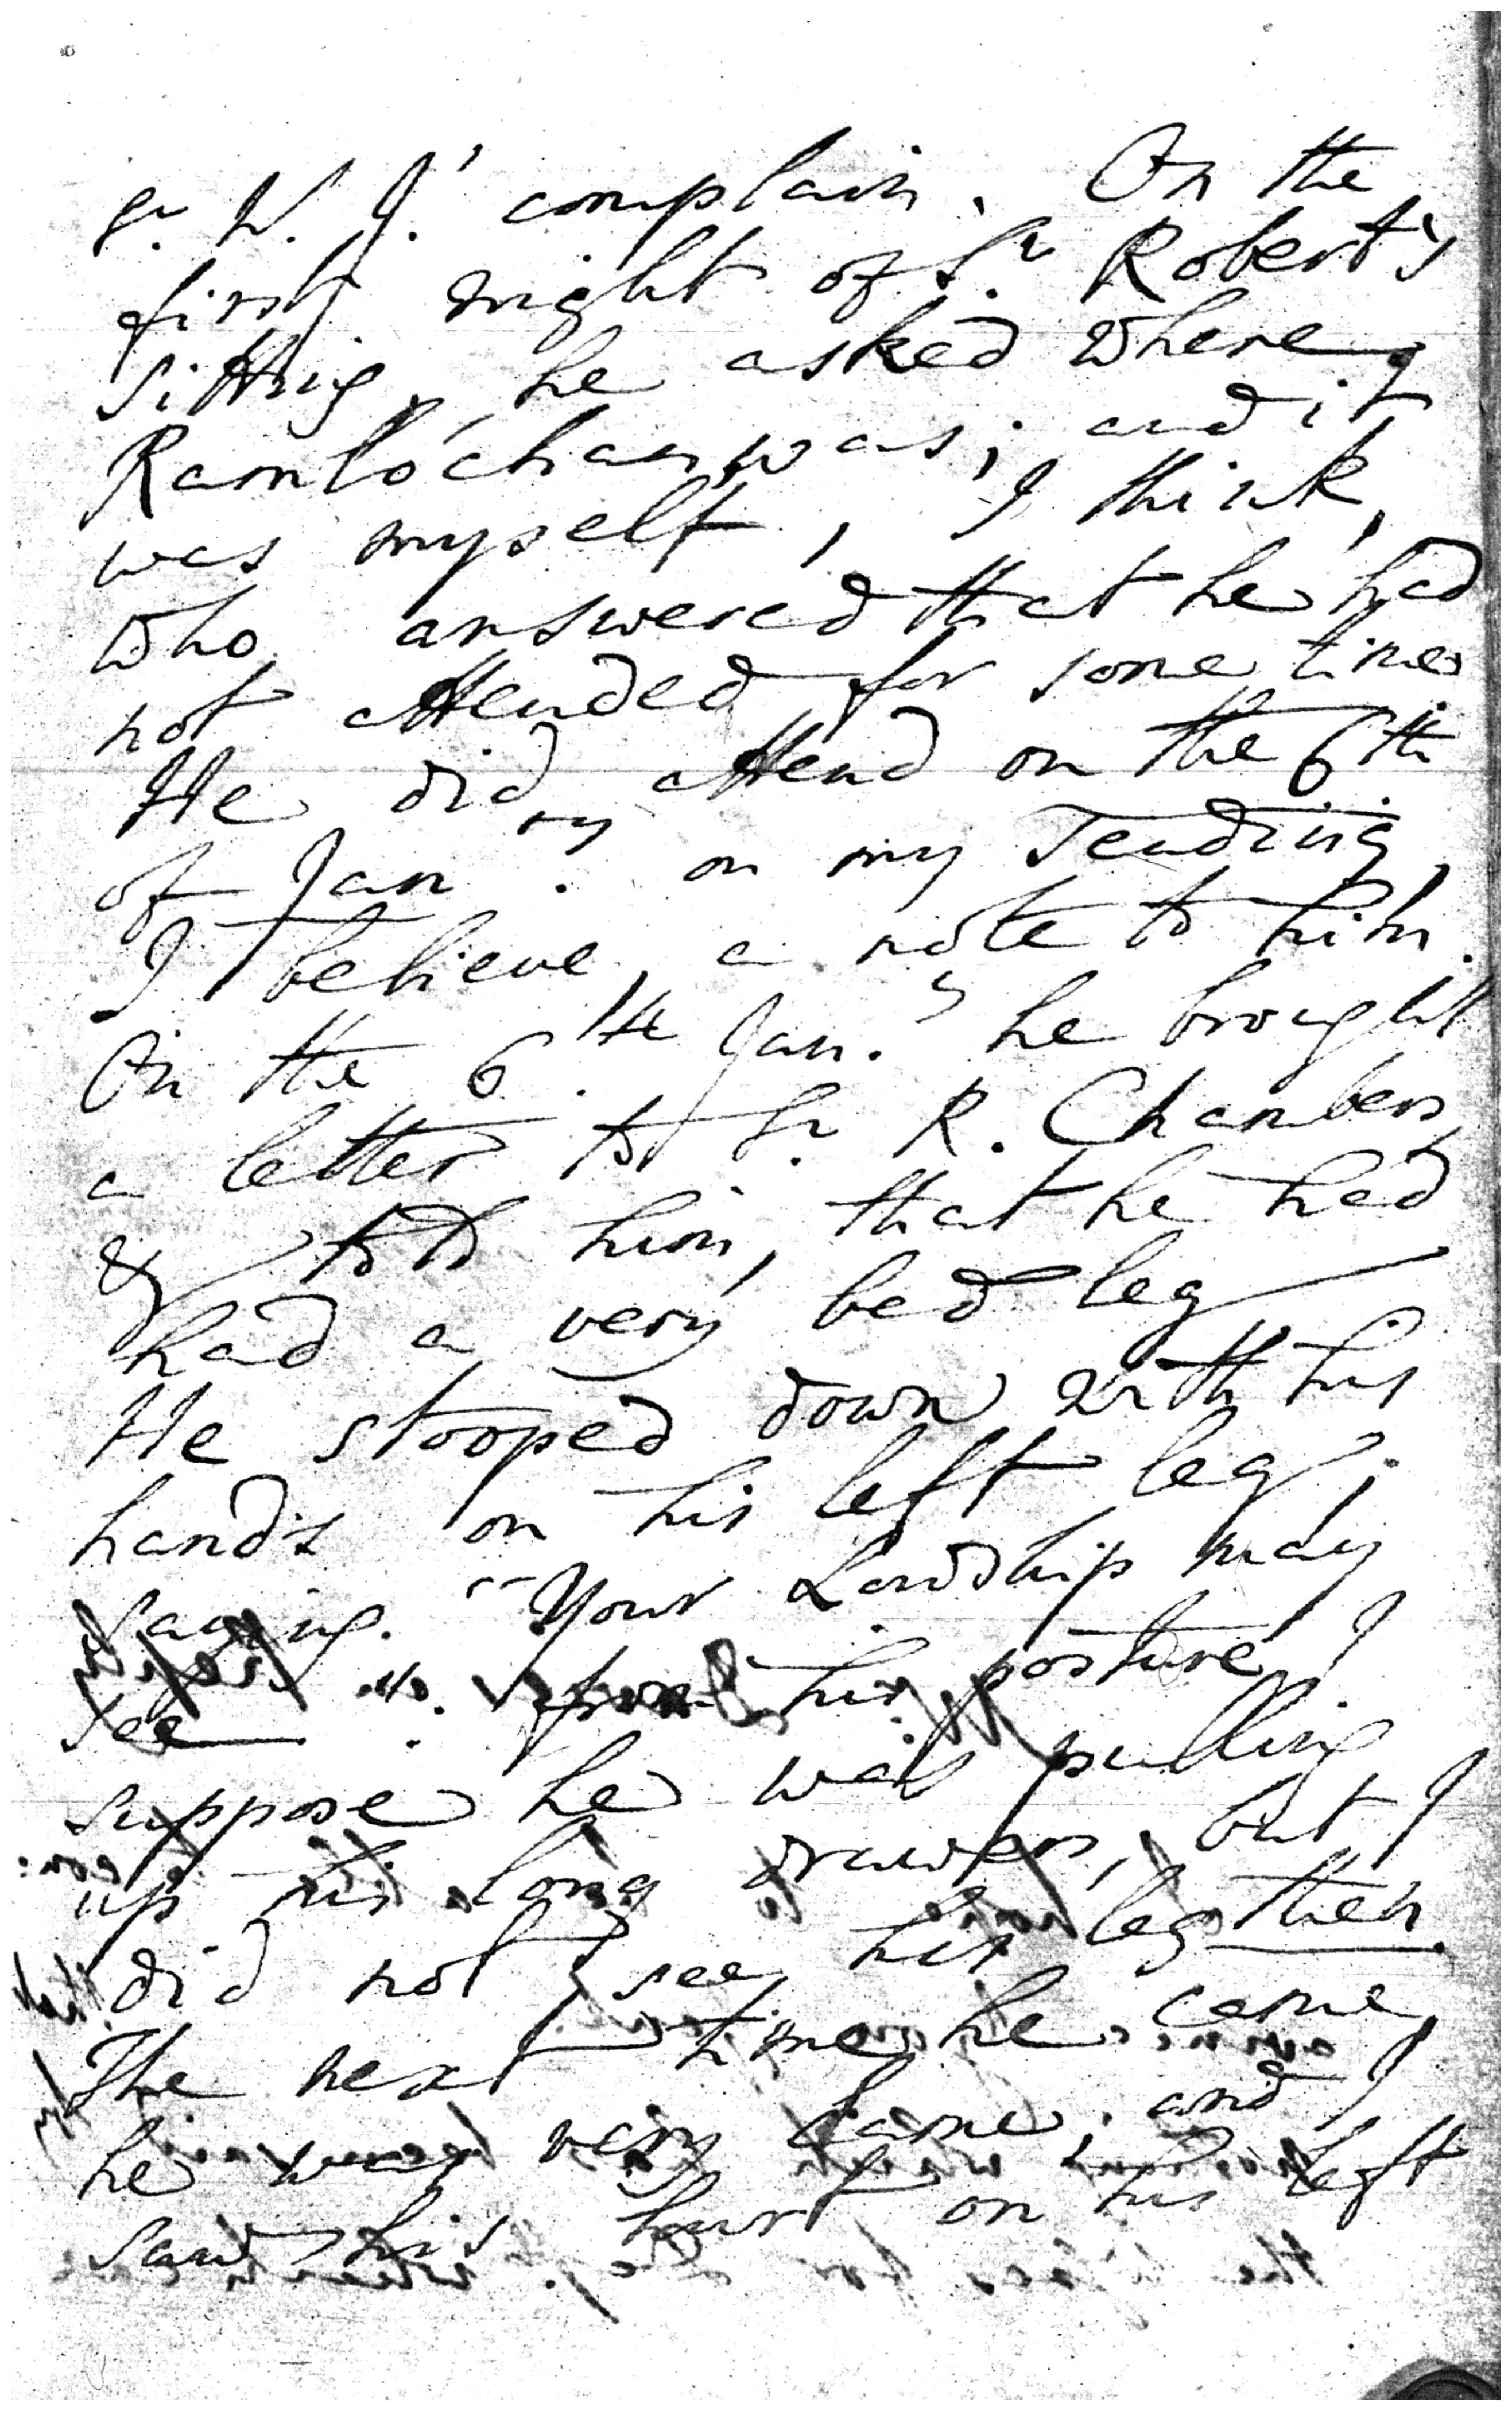 Sr. W. J. complain. On the
first night of Sr. Robert's
sitting, he asked where
Ramlóchan was; and it
was myself, I think,
who answered that he had
not attended for some time
He did attend on the 6th
of Janry. on my sending,
I believe, a note to him.
On the 6th Jany. he brought
a letter to Sr. R. Chambers,
& told him, that he had
had a very bad leg
He stooped down with his
hands on his left leg;
saying. "Your Lordship may
see". from his posture I
suppose he was pulling
up his long drawers, but I
did not see his leg then.
The next time he came,
he was very lame, and I
saw his hurt on his left